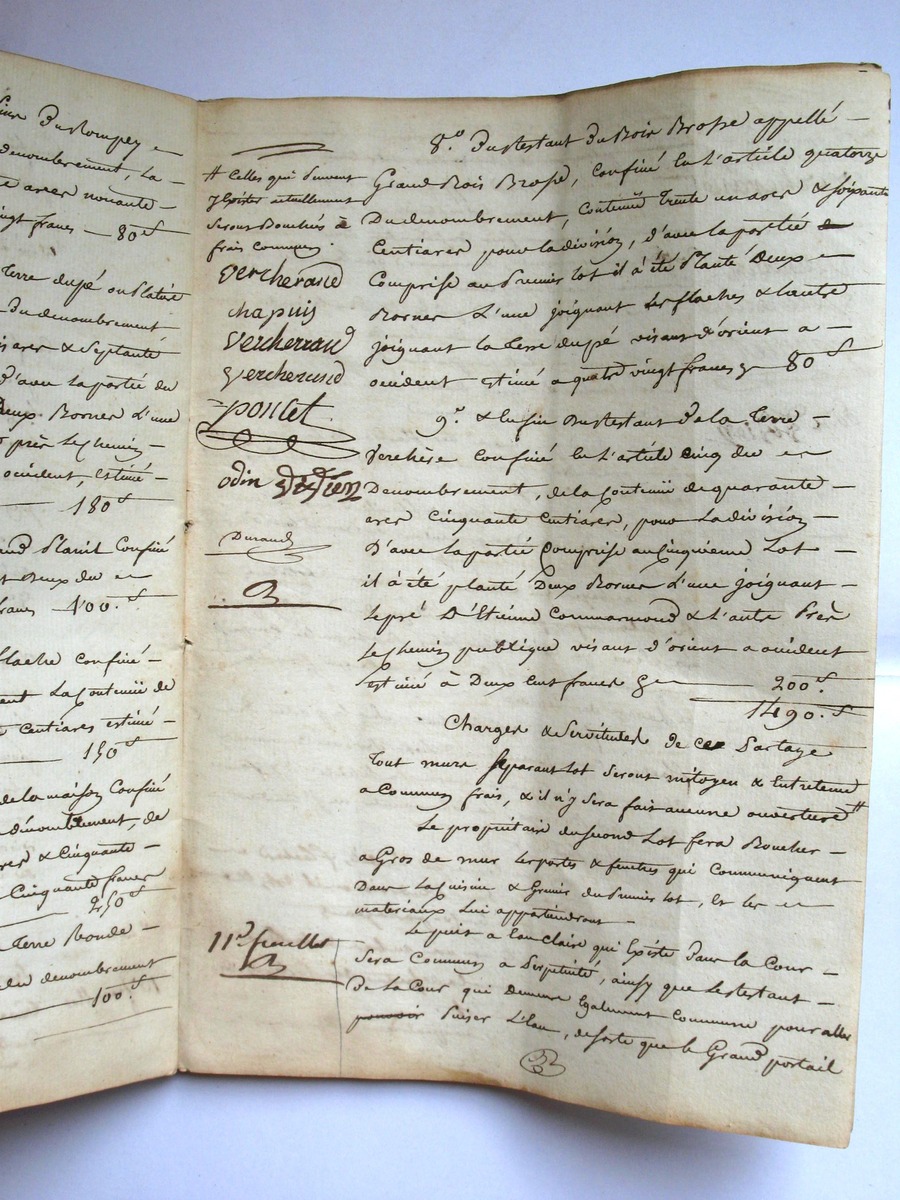 Du Rompey
denombrement, La
avec nonante
vingt francs — 80 f
Terre du pé ou Platiere
Du denombrement
ares & Septante
D'avec La partie du
Deux Bornes L'une
près Le chemin
occident, Estimé
180 f
Confiné
Deux du
francs — 100. f
flache confiné
La Contenüe de
Centiares estimé
150 f
de la maison Confiné
dénombrement, de
ares & Cinquante
Cinquante francs
250 f
Terre Ronde
du denombrement
100. f
# Celles qui peuvent
Exister actuellement
Seront Bouchées à
frais communs.
Vercherand
chapuis
Vercherand
Vercherand
poncet
odin
Durand
11e. feuillet
8°. Du Restant du Bois Brosse appellé
Grand Bois Brosse, confiné En L'article quatorze
Du denombrement, Contenüe Trente un ares & soixante
Centiares pour la division, d'avec la partie
Comprise au Premier lot il à été Planté Deux
Bornes L'une joignant Les flaches & Lautre
joignant la Terre du pé visant d'orient a
occident estimé a quatre vingt francs 80 f
9°. & Enfin Du Restant de la Terre
Verchère Confiné En L'article Cinq du
Denombrement, de la Contenüe de quarante
ares Cinquante Centiares, pour La division
D'avec La partie Comprise au Cinquième Lot
il à été planté Deux Bornes L'une joignant
Le pré D'Etienne Commarmond & L'autre Près
Le Chemin publique visant d'orient a occident
Estimé à Deux Cent francs 200 f
1490. f
Charges & Servitudes de ce Partage
Tout murs separant Lot seront mitoyen & Entretenu
a Commun frais, & il n'y Sera fait aucune ouverture #
Le propriétaire du second Lot fera Boucher
a Gros de mur Les portes & fenêtres qui Communiquent
Dans La Cuisine & Grenier du Premier lot, Et les
materiaux Lui appartiendront
Le puit a Eau Claire qui Existe dans la Cour
Sera Commun a Perpetuité, ainsy que Le Restant
De La Cour qui demeure Egalement Commune pour aller
pouvoir Puiser L'Eau, de sorte que le Grand portail